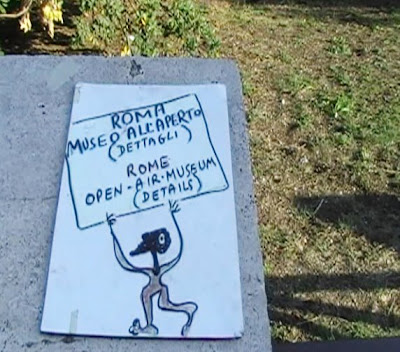 ROMA
MUSEO ALL'APERTO
(DETTAGLI)
ROME
OPEN-AIR-MUSEUM
(DETAILS)